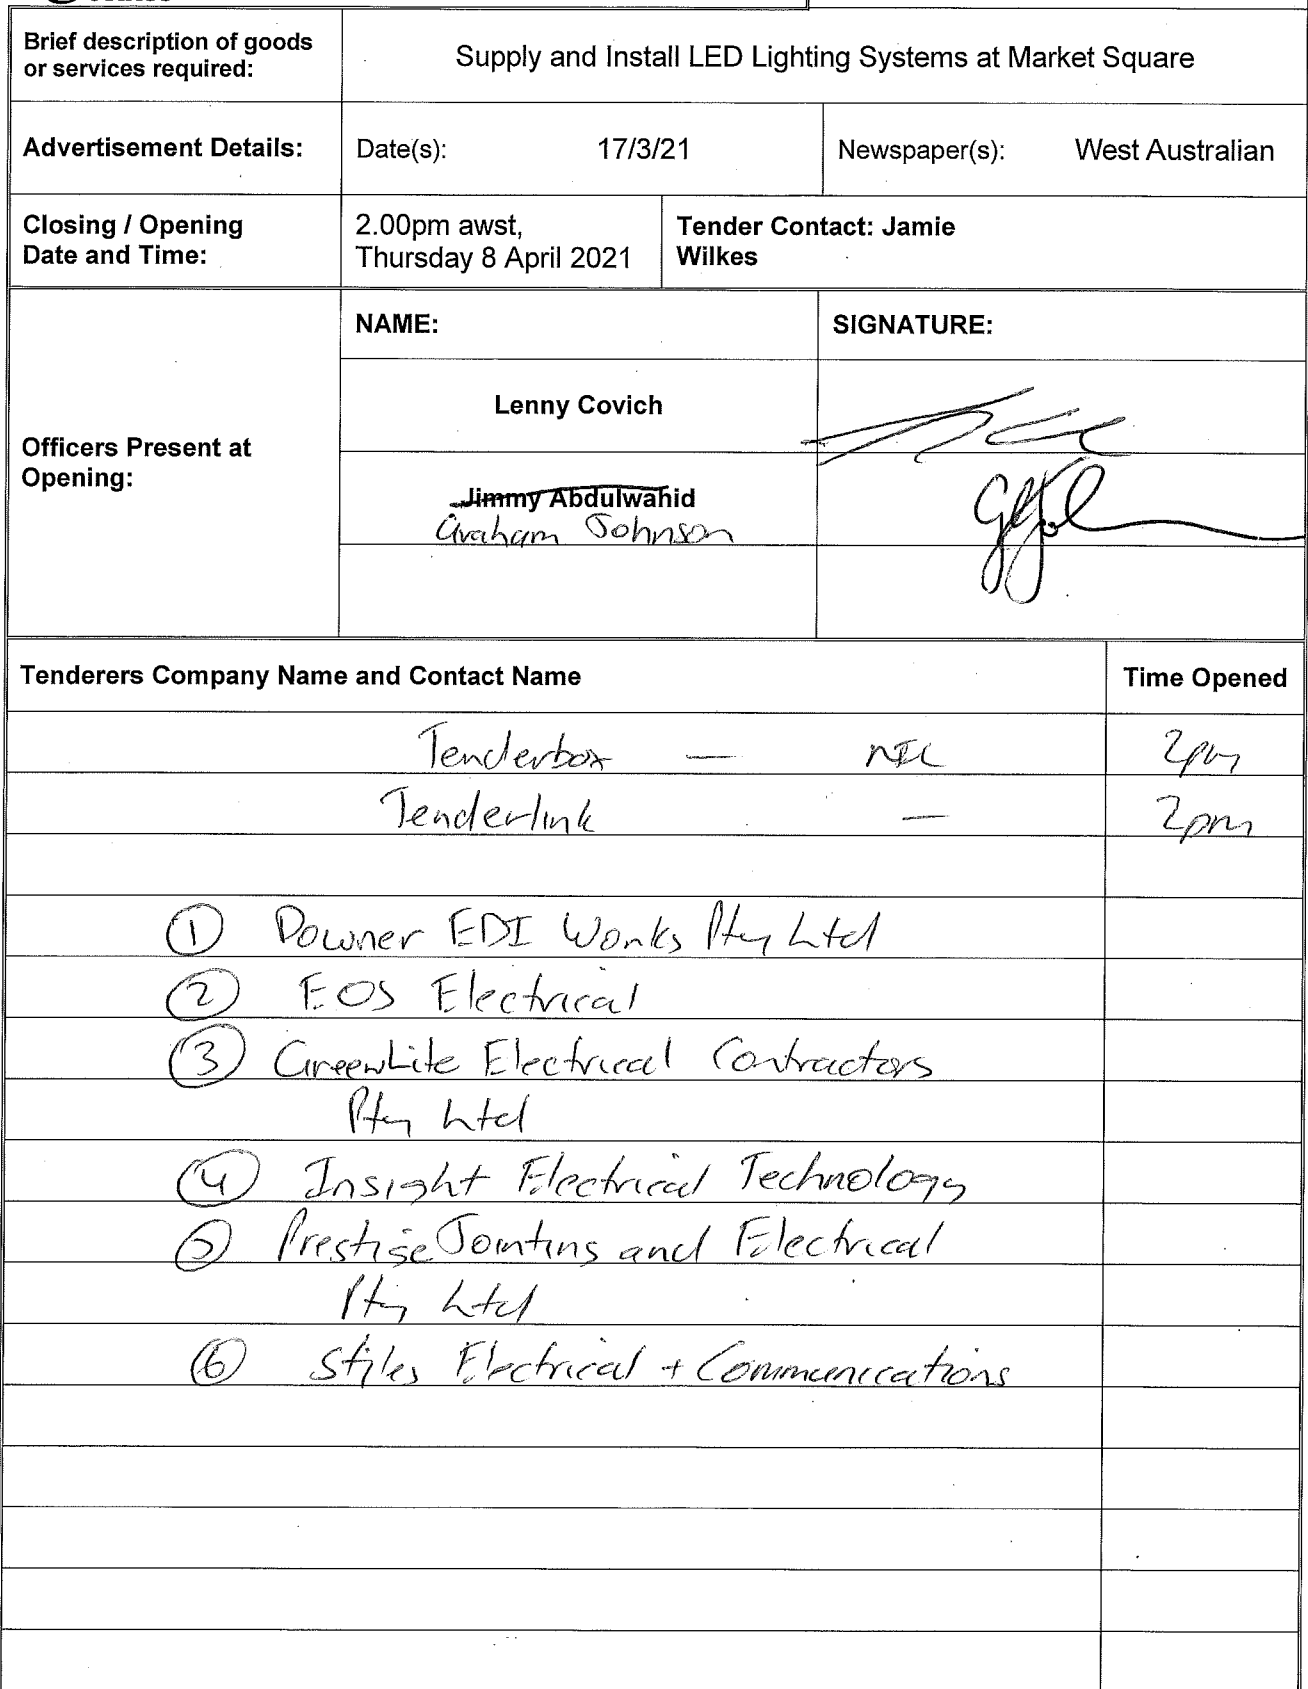 Brief description of goods
or services required:
Supply and Install LED Lighting Systems at Market Square
Advertisement Details:
Date(s): 17/3/21
Newspaper(s): West Australian
Closing / Opening
Date and Time:
2.00pm awst,
Thursday 8 April 2021
Tender Contact: Jamie
Wilkes
Officers Present at
Opening:
NAME:
SIGNATURE:
Lenny Covich
Jimmy Abdulwahid
Graham Johnson
Tenderers Company Name and Contact Name
Time Opened
Tenderbox — NIL 2pm
Tenderlink — 2pm
① Downer EDI Works Pty Ltd
② EOS Electrical
③ GreenLite Electrical Contractors
Pty Ltd
④ Insight Electrical Technology
⑤ Prestige Jointing and Electrical
Pty Ltd
⑥ Stiles Electrical + Communications